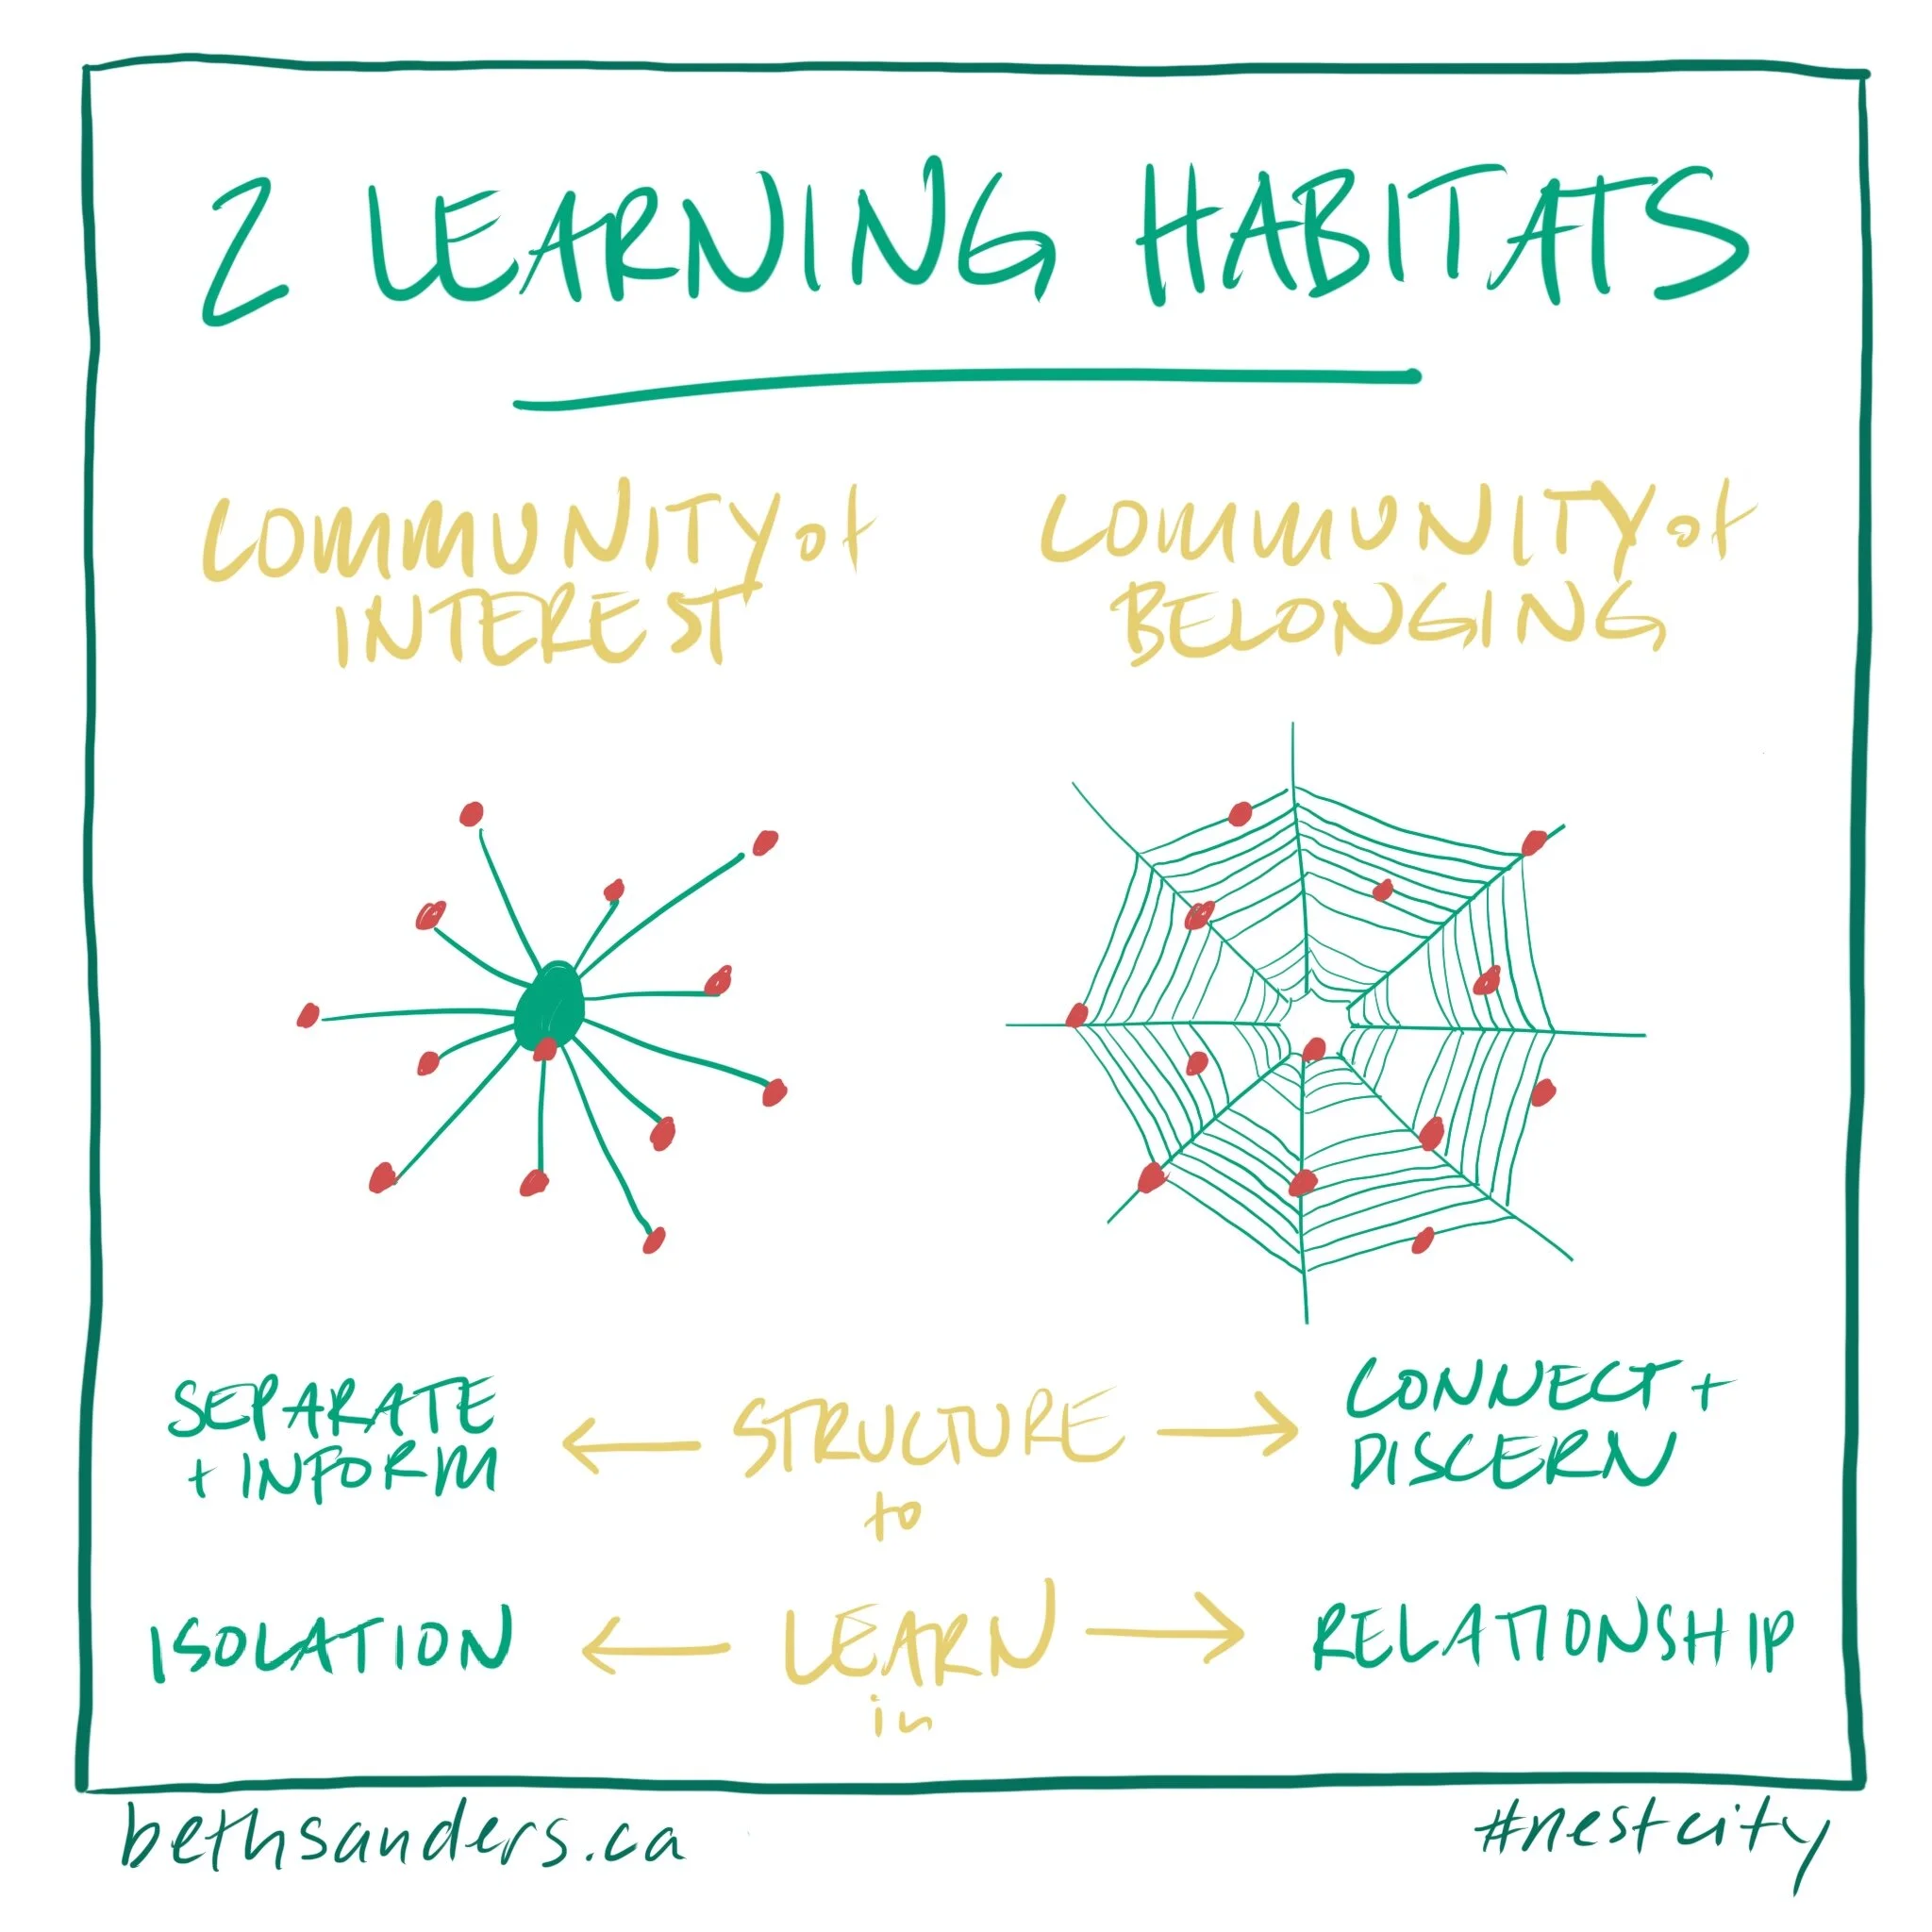 2 LEARNING HABITATS
COMMUNITY of
INTEREST
COMMUNITY of
BELONGING
SEPARATE
+ INFORM
STRUCTURE
to
CONNECT +
DISCERN
ISOLATION
LEARN
in
RELATIONSHIP
bethsanders.ca
#nestcity